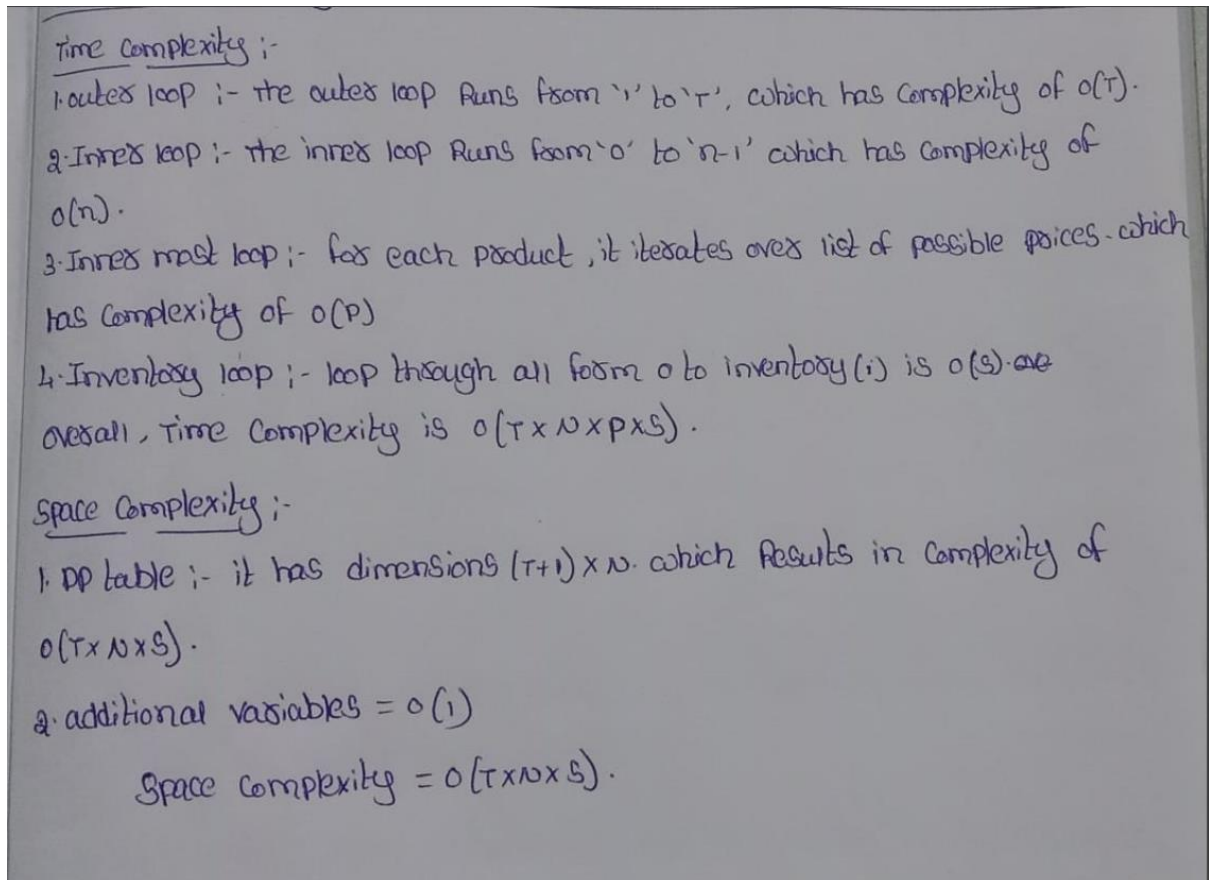 Time Complexity :-
1. outer loop :- The outer loop Runs from '1' to 'T', which has complexity of O(T).
2. Inner loop :- The inner loop Runs from '0' to 'n-1' which has complexity of
O(n).
3. Inner most loop :- for each product, it iterates over list of possible prices. which
has complexity of O(P)
4. Inventory loop :- loop through all form 0 to inventory(i) is O(S).
overall, Time Complexity is O(T x N x P x S).
Space Complexity :-
1. DP table :- it has dimensions (T+1) x N. which Results in complexity of
O(T x N x S).
2. additional variables = O(1)
Space complexity = O(T x N x S).